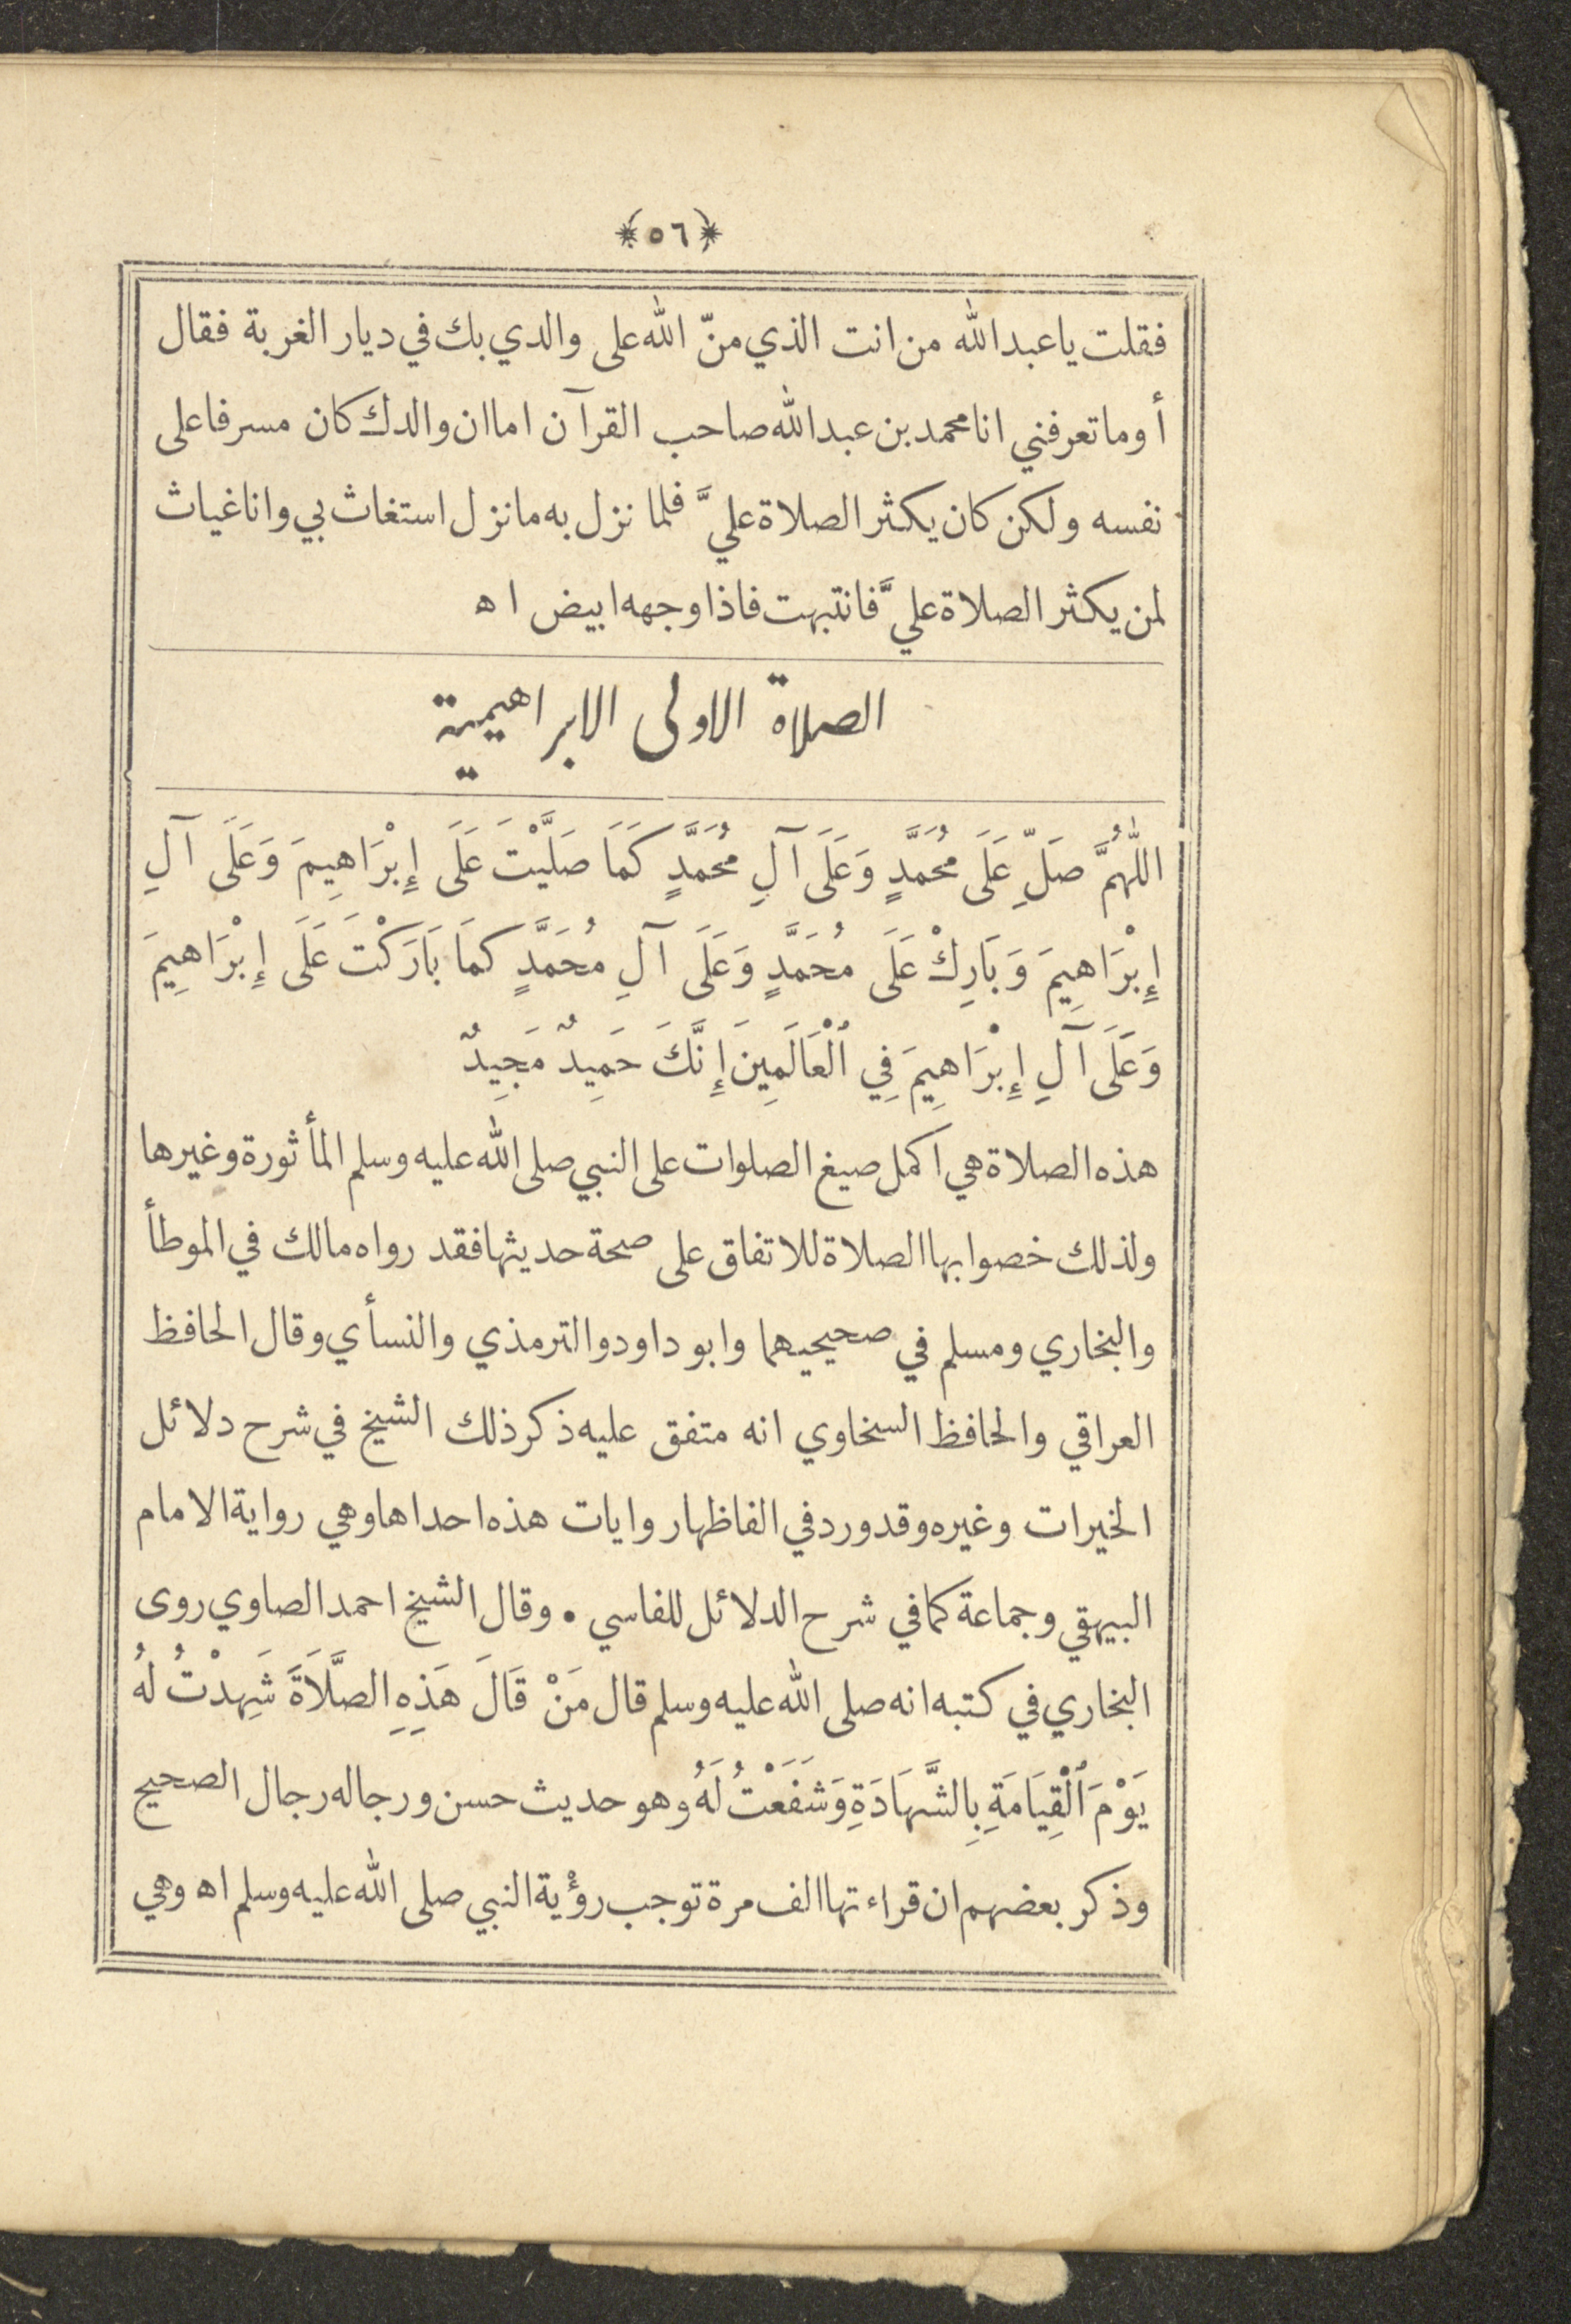 ﴿٥٦﴾
فقلت يا عبد الله من انت الذي منّ الله على والدي بك في ديار الغربة فقال
أوما تعرفني انا محمد بن عبد الله صاحب القرآن اما ان والدك كان مسرفا على
نفسه ولكن كان يكثر الصلاة عليَّ فلما نزل به ما نزل استغاث بي وانا غياث
لمن يكثر الصلاة عليَّ فانتبهت فاذا وجهه ابيض اه
الصلاة الاولى الابراهيمية
اللّٰهُمَّ صَلِّ عَلَى مُحَمَّدٍ وَعَلَى آلِ مُحَمَّدٍ كَمَا صَلَّيْتَ عَلَى إِبْرَاهِيمَ وَعَلَى آلِ
إِبْرَاهِيمَ وَبَارِكْ عَلَى مُحَمَّدٍ وَعَلَى آلِ مُحَمَّدٍ كمَا بَارَكْتَ عَلَى إِبْرَاهِيمَ
وَعَلَى آلِ إِبْرَاهِيمَ فِي ٱلْعَالَمِينَ إِنَّكَ حَمِيدٌ مَجِيدٌ
هذه الصلاة هي اكمل صيغ الصلوات على النبي صلى الله عليه وسلم المأثورة وغيرها
ولذلك خصوا بها الصلاة للاتفاق على صحة حديثها فقد رواه مالك في الموطأ
والبخاري ومسلم في صحيحيهما وابو داود والترمذي والنسأي وقال الحافظ
العراقي والحافظ السخاوي انه متفق عليه ذكر ذلك الشيخ في شرح دلائل
الخيرات وغيره وقد ورد في الفاظها روايات هذه احداها وهي رواية الامام
البيهقي وجماعة كما في شرح الدلائل للفاسي • وقال الشيخ احمد الصاوي روى
البخاري في كتبه انه صلى الله عليه وسلم قال مَنْ قَالَ هَذِهِ الصَّلَاةَ شَهِدْتُ لَهُ
يَوْمَ ٱلْقِيَامَةِ بِالشَّهَادَةِ وَشَفَعْتُ لَهُ وهو حديث حسن ورجاله رجال الصحيح
وذكر بعضهم ان قراءتها الف مرة توجب رؤْية النبي صلى الله عليه وسلم اه وهي